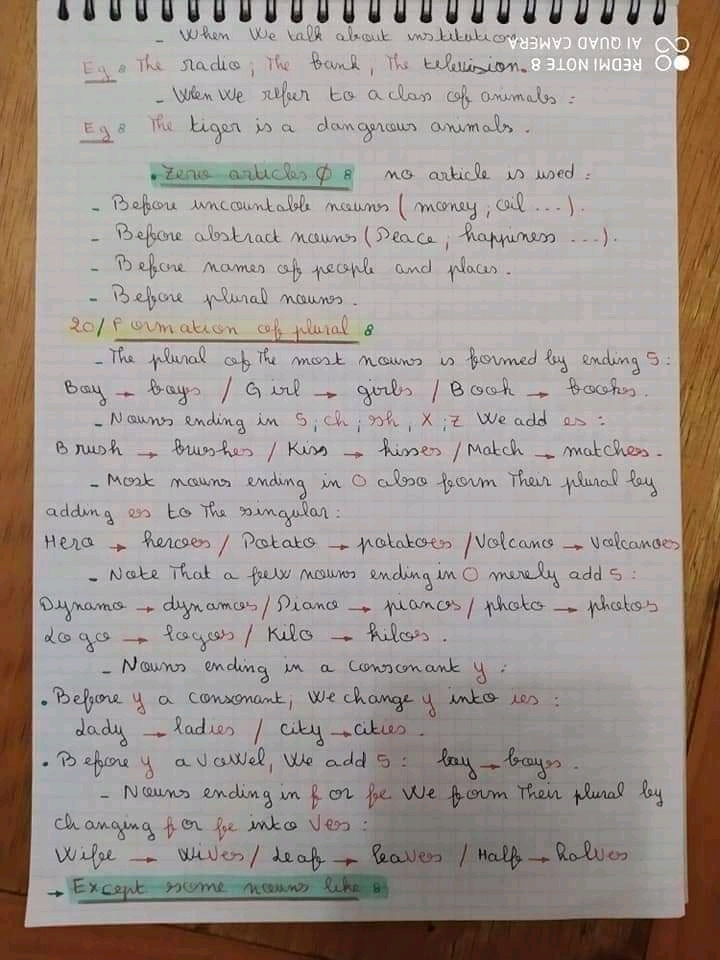 - When We talk about institution
REDMI NOTE 8
AI QUAD CAMERA
Eg : The radio ; The bank ; The television.
- When We refer to a class of animals :
Eg : The tiger is a dangerous animals .
• Zero articles Ø : no article is used :
- Before uncountable nouns ( money ; oil ... ) .
- Before abstract nouns ( Peace ; happiness ... ) .
- Before names of people and places .
- Before plural nouns .
20/ Formation of plural :
- The plural of The most nouns is formed by ending S :
Boy → boys / Girl → girls / Book → books .
- Nouns ending in S ; ch ; sh ; X ; Z We add es :
Brush → brushes / Kiss → kisses / Match → matches .
- Most nouns ending in O also form Their plural by
adding es to The singular :
Hero → heroes / Potato → potatoes / Volcano → Volcanoes
- Note That a few nouns ending in O merely add S :
Dynamo → dynamos / Piano → pianos / photo → photos
Logo → logos / Kilo → kilos .
- Nouns ending in a consonant y :
• Before y a consonant ; We change y into ies :
Lady → ladies / city → cities .
• Before y a vowel, We add S : boy → boys .
- Nouns ending in f or fe We form Their plural by
changing f or fe into Ves :
Wife → Wives / Leaf → leaves / Half → halves
→ Except some nouns like :